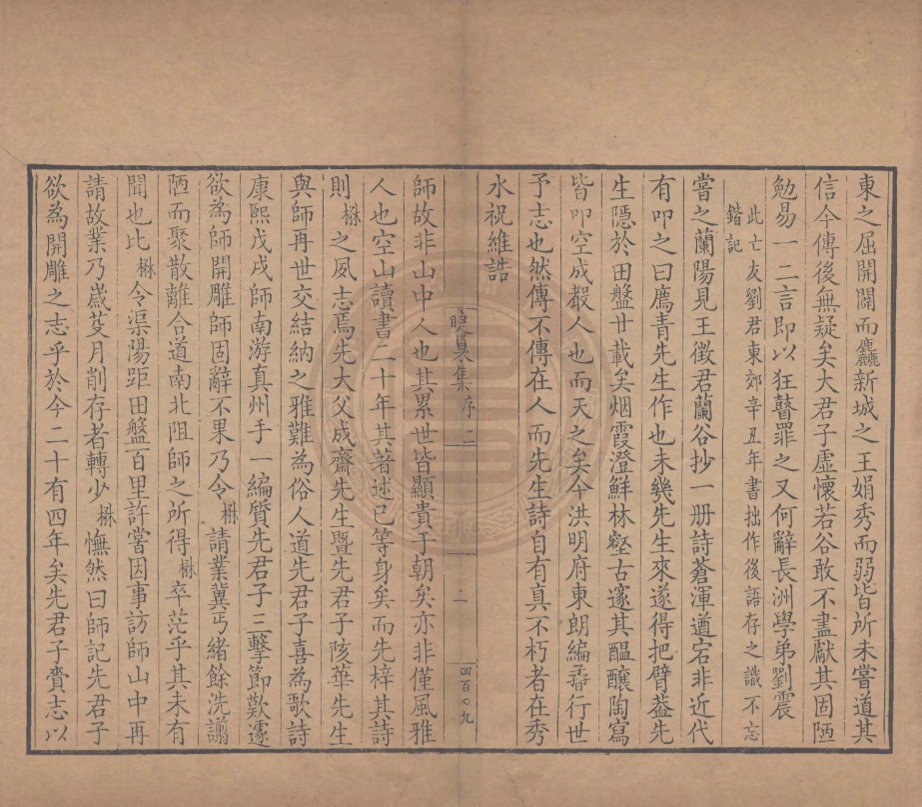 東之屈開闢而麤新城之王娟秀而弱皆所未嘗道其
信今傳後無疑矣大君子虛懷若谷敢不盡獻其固陋
勉易一二言即以狂瞽罪之又何辭長洲學弟劉震
此亡友劉君東郊辛丑年書拙作後語存之識不忘
鍇記
嘗之蘭陽見王徵君蘭谷抄一册詩蒼渾遒宕非近代
有叩之曰廌青先生作也未幾先生來遂得把臂葢先
生隱於田盤廿載矣烟霞澄鮮林壑古邃其醞釀陶寫
皆叩空成殽人也而天之矣今洪明府東朗編尋行世
予志也然傳不傳在人而先生詩自有眞不朽者在秀
水祝維誥
睫巢集序 二
二
四百〇九
師故非山中人也其累世皆顯貴于朝矣亦非僅風雅
人也空山讀書二十年其著述已等身矣而先梓其詩
則楙之夙志焉先大父成齋先生暨先君子陔華先生
與師再世交結納之雅難為俗人道先君子喜為歌詩
康熙戊戌師南游真州手一編質先君子三擊節歎遂
欲為師開雕師固辭不果乃令楙請業冀丐緒餘洗謭
陋而聚散離合道南北阻師之所得楙卒茫乎其未有
聞也比楙令渠陽距田盤百里許嘗因事訪師山中再
請故業乃歲芟月削存者轉少楙憮然曰師記先君子
欲為開雕之志乎於今二十有四年矣先君子賫志以